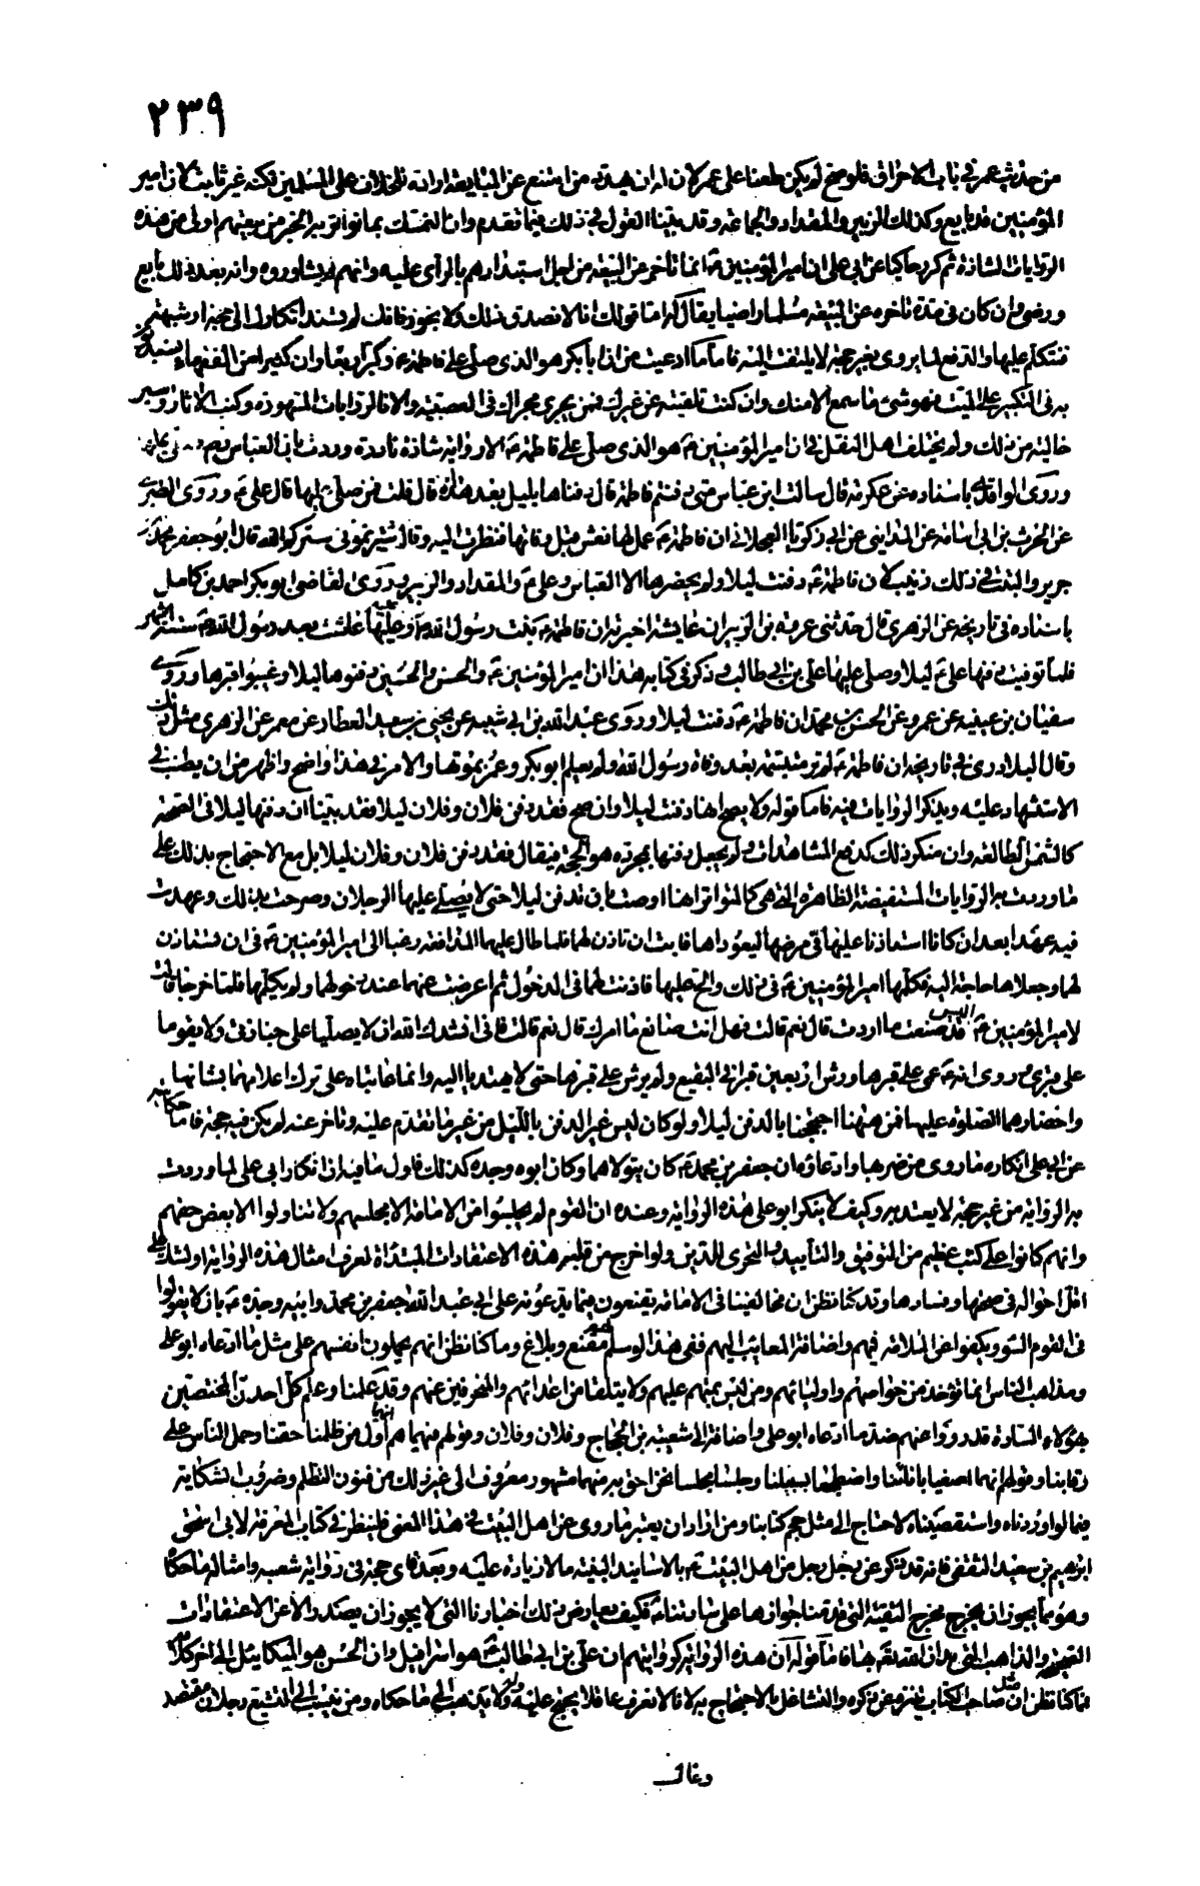 ٢٣٩
من حديث عمر في باب الاحراق فلو صح لم يكن طعنا على عمر لان له ان يهدد من امتنع عن المبايعة ارادة للخلاف على المسلمين لكنه غير ثابت لان امير
المؤمنين قد بايع وكذلك الزبير والمقداد والجماعة وقد بينا القول في ذلك فيما تقدم وان التمسك بما تواتر به الخبر من بيعتهم اولى من هذه
الروايات الشاذة ثم كر حاكيا عن ابي علي ان امير المؤمنين ع انما تاخر عن البيعة من اجل استبدادهم بالرأى عليه وانهم لم يشاوروه وانه بعد ذلك بايع
ورضى وان كان في مدة تاخره عن البيعة مسلما راضيا يقال له اما قولك انا لا نصدق ذلك ولا نجوزه فانك لم تسند انكارك الى حجة او شبهة
فنتكلم عليها والدفع لما يروى بغير حجة لا يلتفت اليه فاما ما ادعيت من ان ابا بكر هو الذى صلى على فاطمة ع وكبر اربعا وان كثيرا من الفقهاء يستدلون
به في التكبير على الميت فهو شئ ما سمع الا منك وان كنت تلقيته عن غيرك فمن يجرى مجراك في العصبية والا فالروايات المشهورة وكتب الاثار والسير
خالية من ذلك ولم يختلف اهل النقل في ان امير المؤمنين ع هو الذى صلى على فاطمة ع الا رواية شاذة نادرة وردت بان العباس
وروى الواقدى باسناده عن عكرمة قال سالت ابن عباس متى دفنتم فاطمة قال دفناها بليل بعد هداة قال قلت فمن صلى عليها قال علي ع وروى الطبرى
عن الحرث بن ابي اسامة عن المدايني عن ابي زكريا العجلاني ان فاطمة ع عمل لها نعش قبل وفاتها فنظرت اليه وقالت سترتموني ستركم الله قال ابو جعفر محمد بن
جرير والثبت في ذلك زينب لان فاطمة ع دفنت ليلا ولم يحضرها الا العباس وعلي ع والمقداد والزبير وروى القاضي ابو بكر احمد بن كامل
باسناده في تاريخه عن الزهرى قال حدثني عروة بن الزبير ان عايشة اخبرته ان فاطمة ع بنت رسول الله عاشت بعد رسول الله ستة اشهر
فلما توفيت دفنها علي ع ليلا وصلى عليها علي بن ابي طالب وذكر في كتابه هذا ان امير المؤمنين ع والحسن والحسين دفنوها ليلا وغيبوا قبرها وروى
سفيان بن عيينه عن عمرو عن الحسن بن محمد ان فاطمة ع دفنت ليلا وروى عبد الله بن ابي شيبه عن يحيى بن سعيد العطار عن معمر عن الزهرى مثل ذلك
وقال البلاذرى في تاريخه ان فاطمة ع لم تر متبسمة بعد وفاة رسول الله ولم يعلم ابو بكر وعمر بموتها والامر في هذا واضح واظهر من ان يطنب في
الاستشهاد عليه ويذكر الروايات فيه فاما قوله ولا يصح انها دفنت ليلا وان صح فقد دفن فلان وفلان ليلا فقد بينا ان دفنها ليلا في الصحة
كالشمس الطالعه وان منكر ذلك كدافع المشاهدات ولم يجعل دفنها بمجرده هو الحجة فيقال فقد دفن فلان وفلان ليلا بل مع الاحتجاج بذلك على
ما وردت به الروايات المستفيضة الظاهرة التي هي كالمتواتر انها اوصت بان تدفن ليلا حتى لا يصلى عليها الرجلان وصرحت بذلك وعهدت
فيه عهدا بعد ان كانا استاذنا عليها في مرضها ليعوداها فابت ان تاذن لهما فلما طال عليهما المدافعه رغبا الى امير المؤمنين ع في ان يستاذن
لهما وجعلاها حاجة اليه فكلمها امير المؤمنين ع في ذلك والح عليها فاذنت لهما في الدخول ثم اعرضت عنهما عند دخولهما ولم يكلمهما فلما خرجا قالت
لامير المؤمنين ع اليس قد صنعت ما اردت قال نعم قالت فهل انت صانع ما امرك قال نعم قالت فاني انشدك الله ان لا يصليا على جنازتى ولا يقوما
على قبرى وروى انه ع عمى على قبرها ورش اربعين قبرا في البقيع ولم يرش على قبرها حتى لا يهتديا اليه وانما عاتباه على ترك اعلامهما بشانها
واحضارهما الصلوة عليها فمن هيهنا احتججنا بالدفن ليلا ولو كان ليس غير الدفن بالليل من غير ما تقدم عليه وتاخر عنه لم يكن فيه حجة فاما حكايته
عن ابي علي انكاره ما روى من ضربها وادعاؤه ان جعفر بن محمد ع كان يتولاهما وكان ابوه وجده كذلك فاول ما فيه ان انكار ابي علي لما وردت
به الرواية من غير حجة لا يعتد به وكيف لا ينكر ابو علي هذه الرواية وعنده ان القوم لم يجلسوا من الامامة الا مجلسهم ولا تناولوا الا بعض حقهم
وانهم كانوا على كتب عظيم من التوفيق والتأييد والتحرى للدين ولو اخرج من قلبه هذه الاعتقادات المبتدأة لعرف امثال هذه الرواية او لشك على
اقل احواله في صحتها وفسادها وقد كنا نظن ان مخالفينا في الامامة يقنعون فيما يدعونه على ابي عبد الله جعفر بن محمد وابيه وجده ع بان لا يقولوا
في القوم السوء ويكفوا عن الملامة فيهم واضافة المعايب اليهم ففى هذا لو سلم مقنع وبلاغ وما كنا نظن انهم يحملون انفسهم على مثل ما ادعاه ابو علي
ومذاهب الناس انما تؤخذ من خواصهم واوليائهم ومن ليس بمتهم عليهم ولا يتلقا من اعدائهم والمنحرفين عنهم وقد علمنا وعلم كل احد ان المختصين
بهؤلاء السادة قد رووا عنهم ضد ما ادعاه ابو علي واضافه الى شعبة بن الحجاج وفلان وفلان وقولهم فيهما هما اول من ظلمنا حقنا وحمل الناس على
رقابنا وقولهم انهما اصفيا باناءنا واضطجعا بسبيلنا وجلسا مجلسا نحن احق به منهما مشهور معروف الى غير ذلك من فنون التظلم وضروب الشكاية
فيما لو اوردناه واستقصيناه لاحتاج الى مثل حجم كتابنا ومن اراد ان يعتبر ما روى عن اهل البيت في هذا المعنى فلينظر في كتاب المعرفة لابي اسحق
ابرهيم بن سعيد الثقفى فانه قد ذكر عن رجل رجل من اهل البيت ع بالاسانيد البينة ما لا زيادة عليه وبعد فاى حجة في رواية شعبه وامثاله ما حكاه
وهو مما يجوز ان يخرج مخرج التقية التي قد قدمنا جوازها على ساداتنا ع فكيف يعارض ذلك اخبارنا التي لا يجوز ان يصدر الا عن الاعتقادات
الصحيحه والمذاهب التي يدان الله بها فاما قوله ان هذه الرواية كروايتهم ان علي بن ابي طالب ع هو اسرافيل وان الحسن هو الميكايئل الى آخر كلامه
فما كنا نظن ان مثل صاحب الكتاب يتنزه عن ذكره والتشاغل بالاحتجاج به لانا لا نعرف عاقلا يحتج عليه وله ولا يذهب الى ما حكاه ومن ينسب الى التشيع رجلان مقتصد
وغال